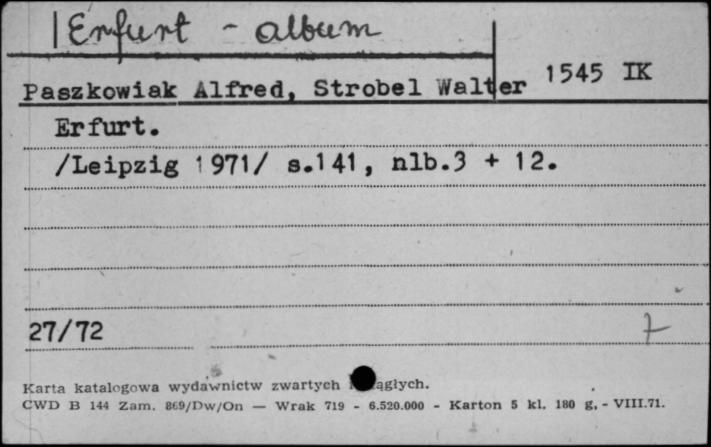 Erfurt - album
1545 IK
Paszkowiak Alfred, Strobel Walter
Erfurt.
/Leipzig 1971/ s.141, nlb.3 + 12.
27/72
Karta katalogowa wydawnictw zwartych
CWD B 144 Zam. 869/Dw/On — Wrak 719 - 6.520.000 - Karton 5 kl. 180 g, - VIII.71.